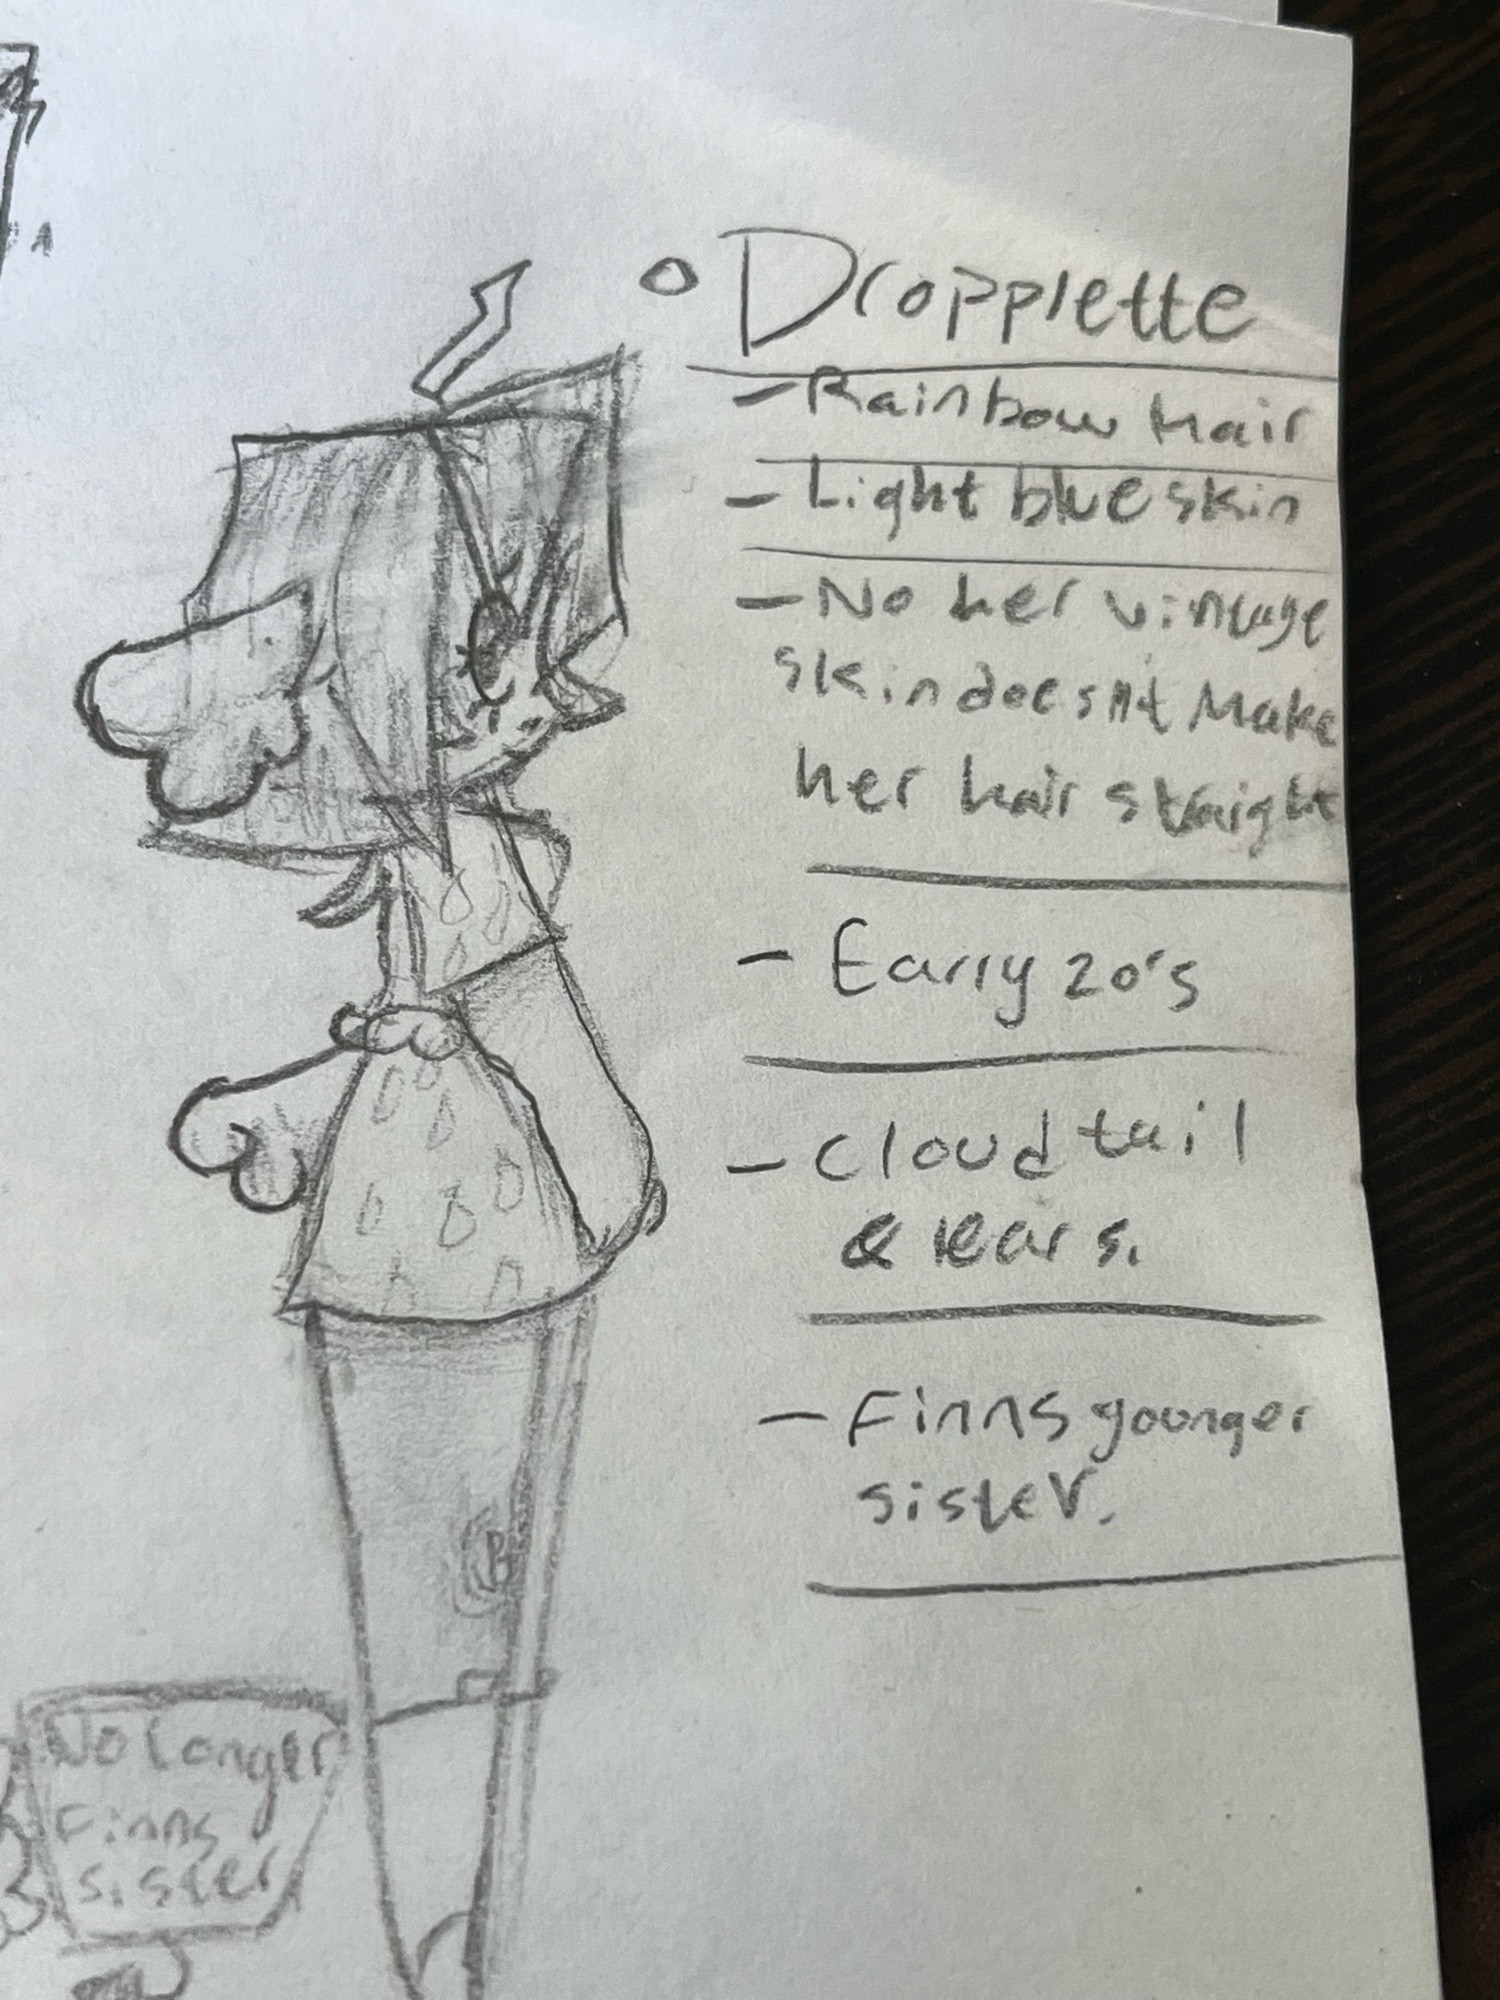 Dropplette
- Rainbow hair
- Light blue skin
- No her vintage
skin doesn't make
her hair straight
- Early 20's
- Cloud tail
& ears.
- Finns younger
sister.
No longer
Finns
sister